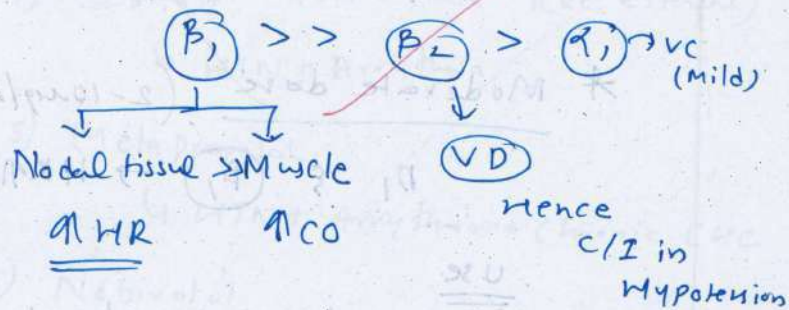 β₁ >> β₂ > α₁ → VC
(Mild)
Nodal tissue >> Muscle
VD
↑ HR
↑ CO
Hence
C/I in
Hypotension